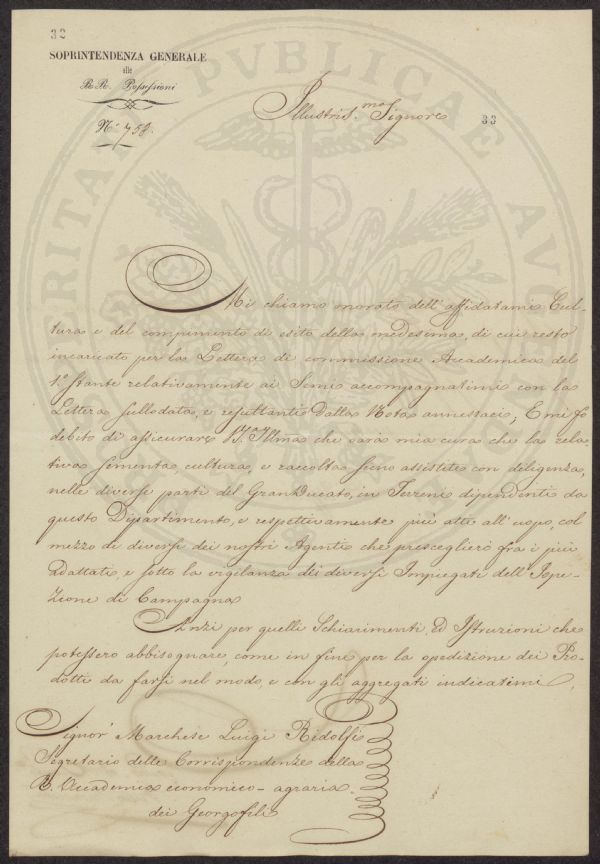 32
SOPRINTENDENZA GENERALE
alle
RR. Possessioni
N.° 758.
Illustris.mo Signore
33
PROSPERITATI PVBLICAE AVG
Mi chiamo onorato dell' affidatami Cul-
tura e del compimento di esito della medesima, di cui resto
incaricato per la Lettera di commissione Accademica del
1.° stante relativamente ai Semi accompagnatimi con la
Lettera sullodata, e resultanti dalla Nota annessaci; E mi fo
debito di assicurare V.S. Ill.ma che sarà mia cura che la rela-
tiva sementa, cultura, e raccolta sieno assistite con deligenza,
nelle diverse parti del GranDucato, in Terreni dipendenti da
questo Dipartimento, e respettivamente più atti all' uopo, col
mezzo di diversi dei nostri Agenti che presceglierò fra i più
adattati, e sotto la vigilanza dei diversi Impiegati dell' Ispe-
zione di Campagna
Anzi per quelli Schiarimenti, ed Istruzioni che
potessero abbisognare, come in fine per la spedizione dei Pro-
dotti da farsi nel modo, e con gli aggregati indicatimi,
Signor' Marchese Luigi Ridolfi
Segretario delle Corrispondenze della
R. Accademia economico-agraria
dei Georgofili